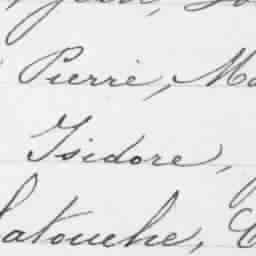 Pierre, Ma
Isidore,
Latouche, C